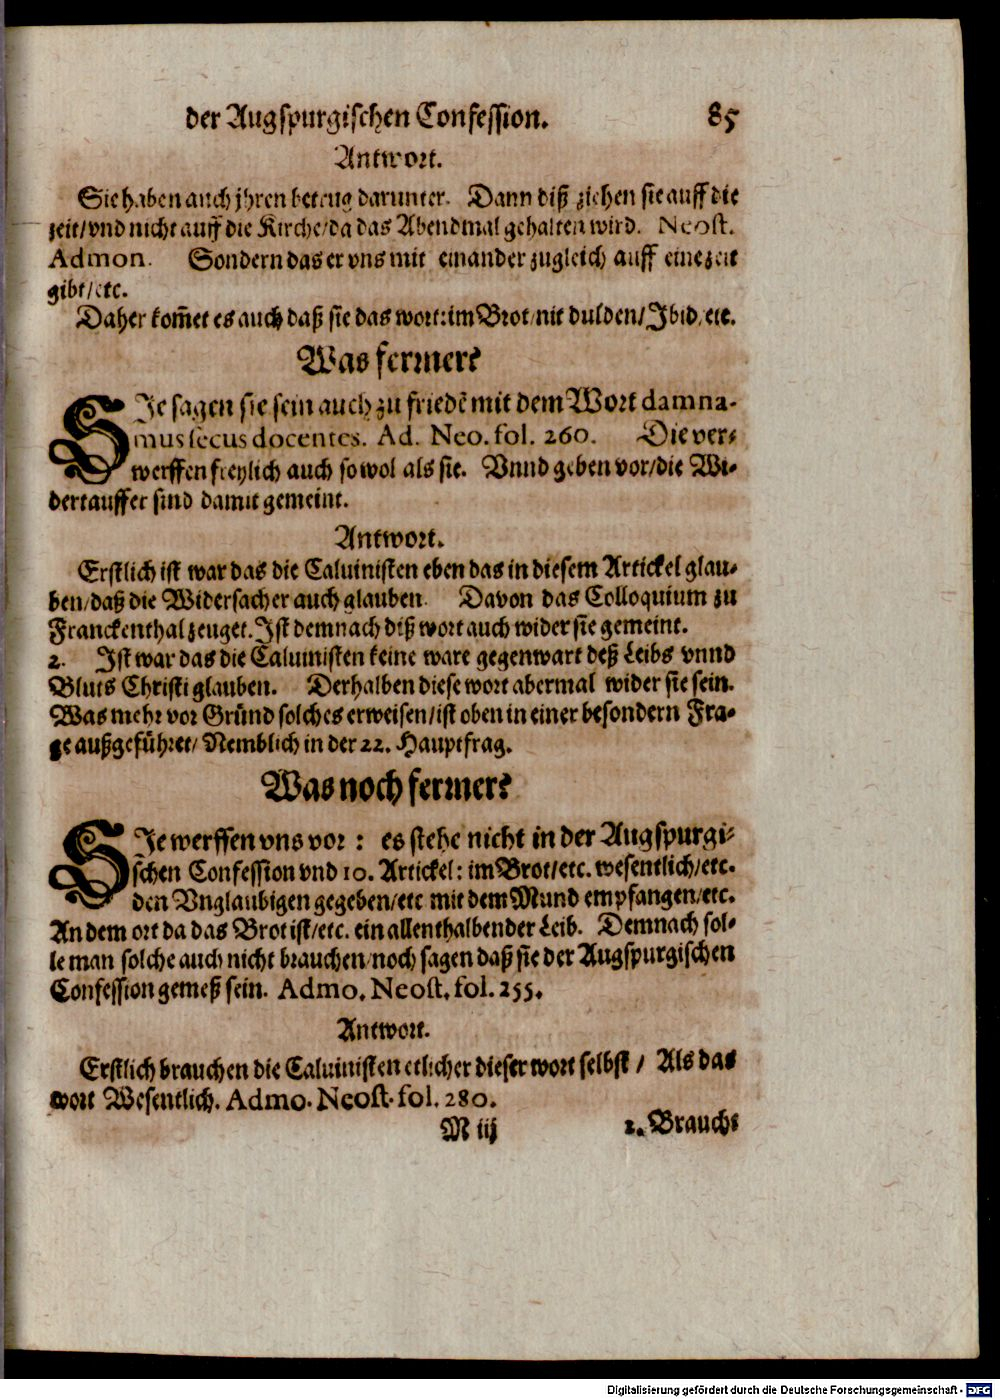 der Augspurgischen Confession. 85
Antwort.
Sie haben auch jhren betrug darunter. Dann diß ziehen sie auff die
zeit/vnd nicht auff die Kirche/da das Abendmal gehalten wird. Neost.
Admon. Sondern das er vns mit einander zugleich auff eine zeit
gibt/etc.
Daher kom̄et es auch daß sie das wort: im Brot/nit dulden/Ibid, etc.
Was ferrner?
SIe sagen sie sein auch zu friedẽ mit dem Wort damna-
mus secus docentes. Ad. Neo. fol. 260. Die ver-
werffen freylich auch so wol als sie. Vnnd geben vor/die Wi-
dertauffer sind damit gemeint.
Antwort.
Erstlich ist war das die Caluinisten eben das in diesem Artickel glau-
ben/daß die Widersacher auch glauben. Davon das Colloquium zu
Franckenthal zeuget. Ist demnach diß wort auch wider sie gemeint.
2. Ist war das die Caluinisten keine ware gegenwart deß Leibs vnnd
Bluts Christi glauben. Derhalben diese wort abermal wider sie sein.
Was mehr vor Gründ solches erweisen/ist oben in einer besondern Fra-
ge außgeführet/ Nemblich in der 22. Hauptfrag.
Was noch ferrner?
SIe werffen vns vor : es stehe nicht in der Augspurgi-
schen Confession vnd 10. Artickel: im Brot/etc. wesentlich/etc.
den Vnglaubigen gegeben/etc mit dem Mund empfangen/etc.
An dem ort da das Brot ist/etc. ein allenthalbender Leib. Demnach sol-
le man solche auch nicht brauchen/noch sagen daß sie der Augspurgischen
Confession gemeß sein. Admo. Neost. fol. 255.
Antwort.
Erstlich brauchen die Caluinisten etlicher dieser wort selbst / Als das
wort Wesentlich. Admo. Neost. fol. 280.
M iij 2. Brauchs
Digitalisierung gefördert durch die Deutsche Forschungsgemeinschaft - DFG